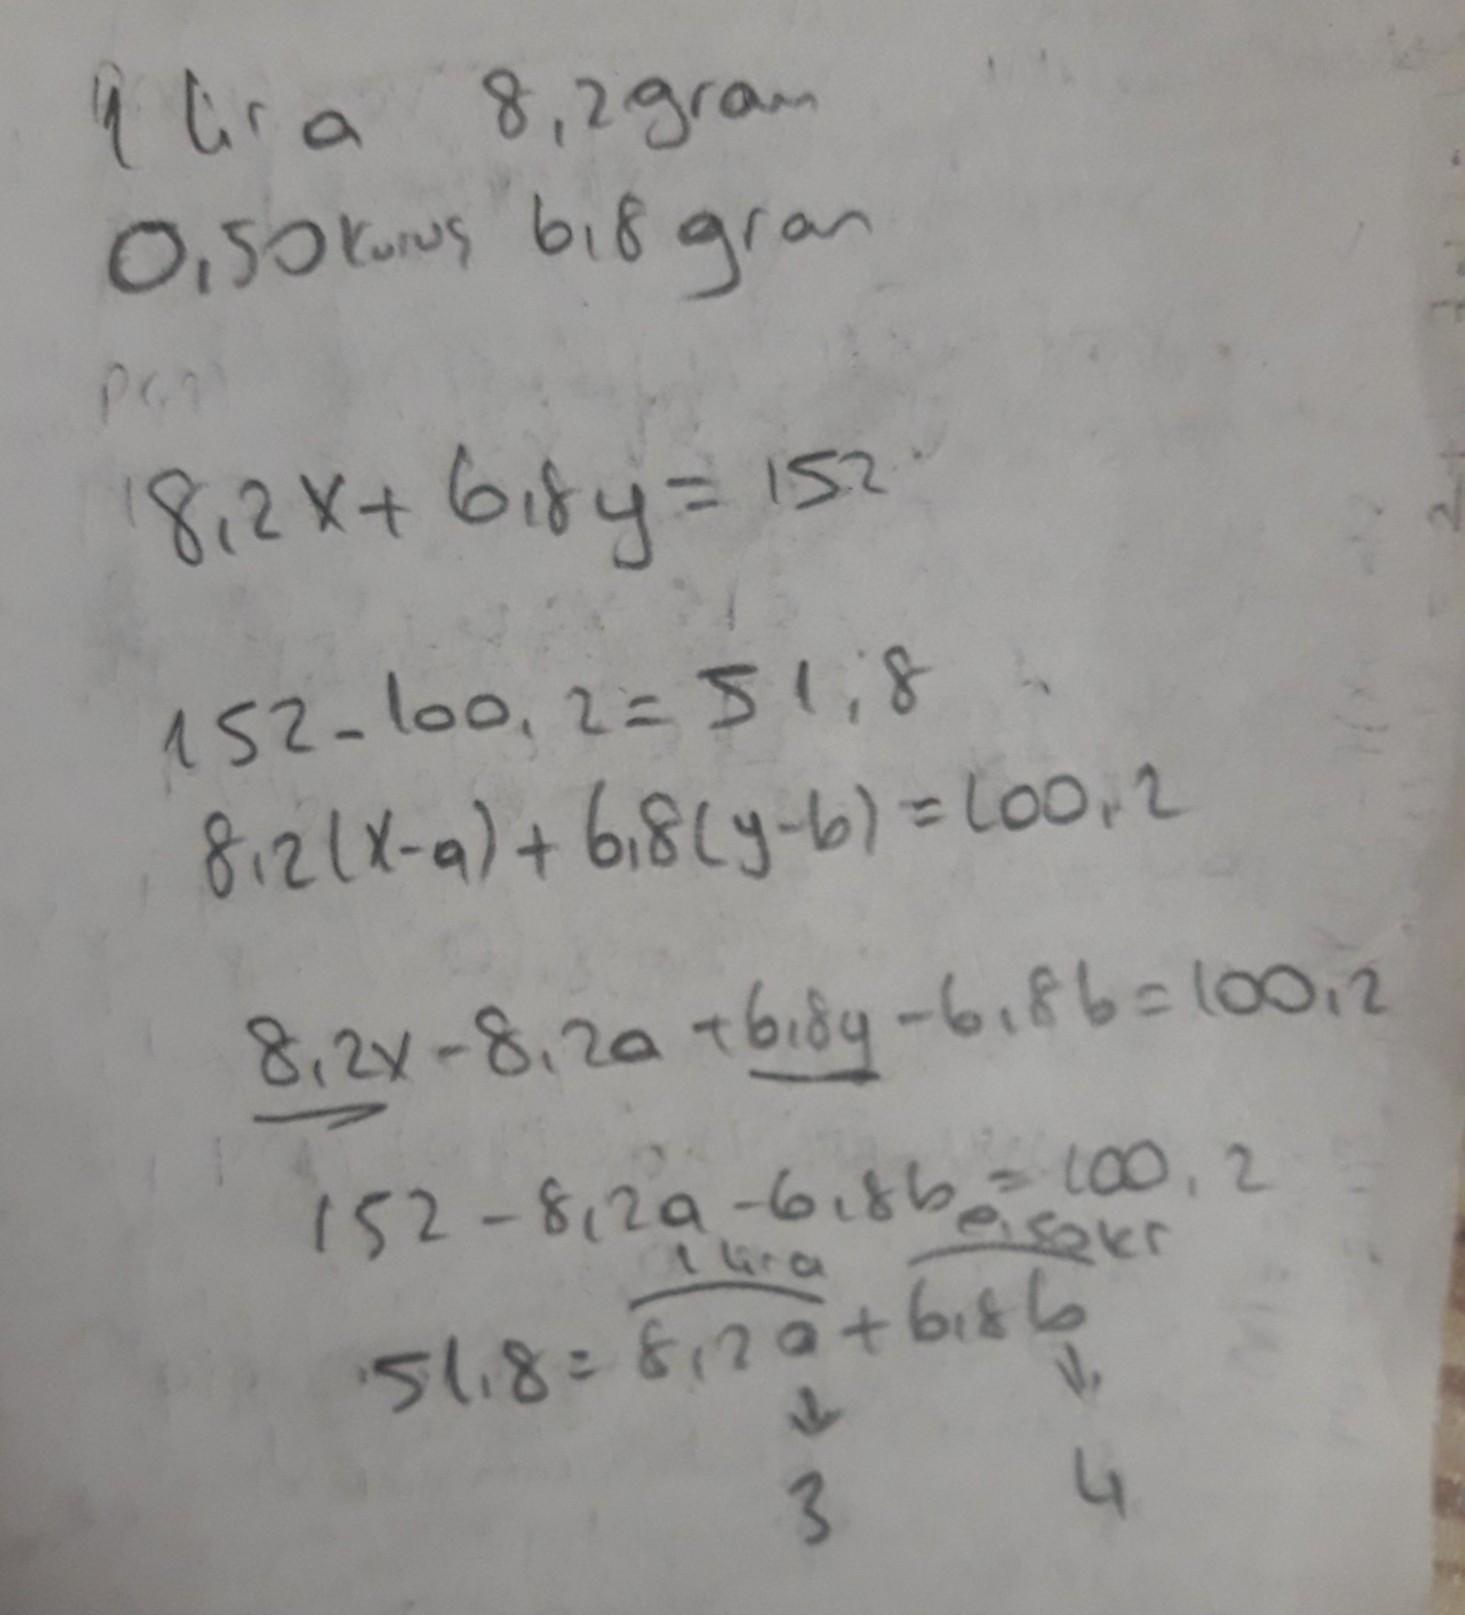 1 lira 8,2gram
0,50kuruş 6,8 gram
8,2x+6,8y=152
152-100,2=51,8
8,2(x-a)+6,8(y-b)=100,2
8,2x-8,2a+6,8y-6,8b=100,2
152-8,2a-6,8b=100,2
1 lira 0,50kr
51,8=8,2a+6,8b
3 4